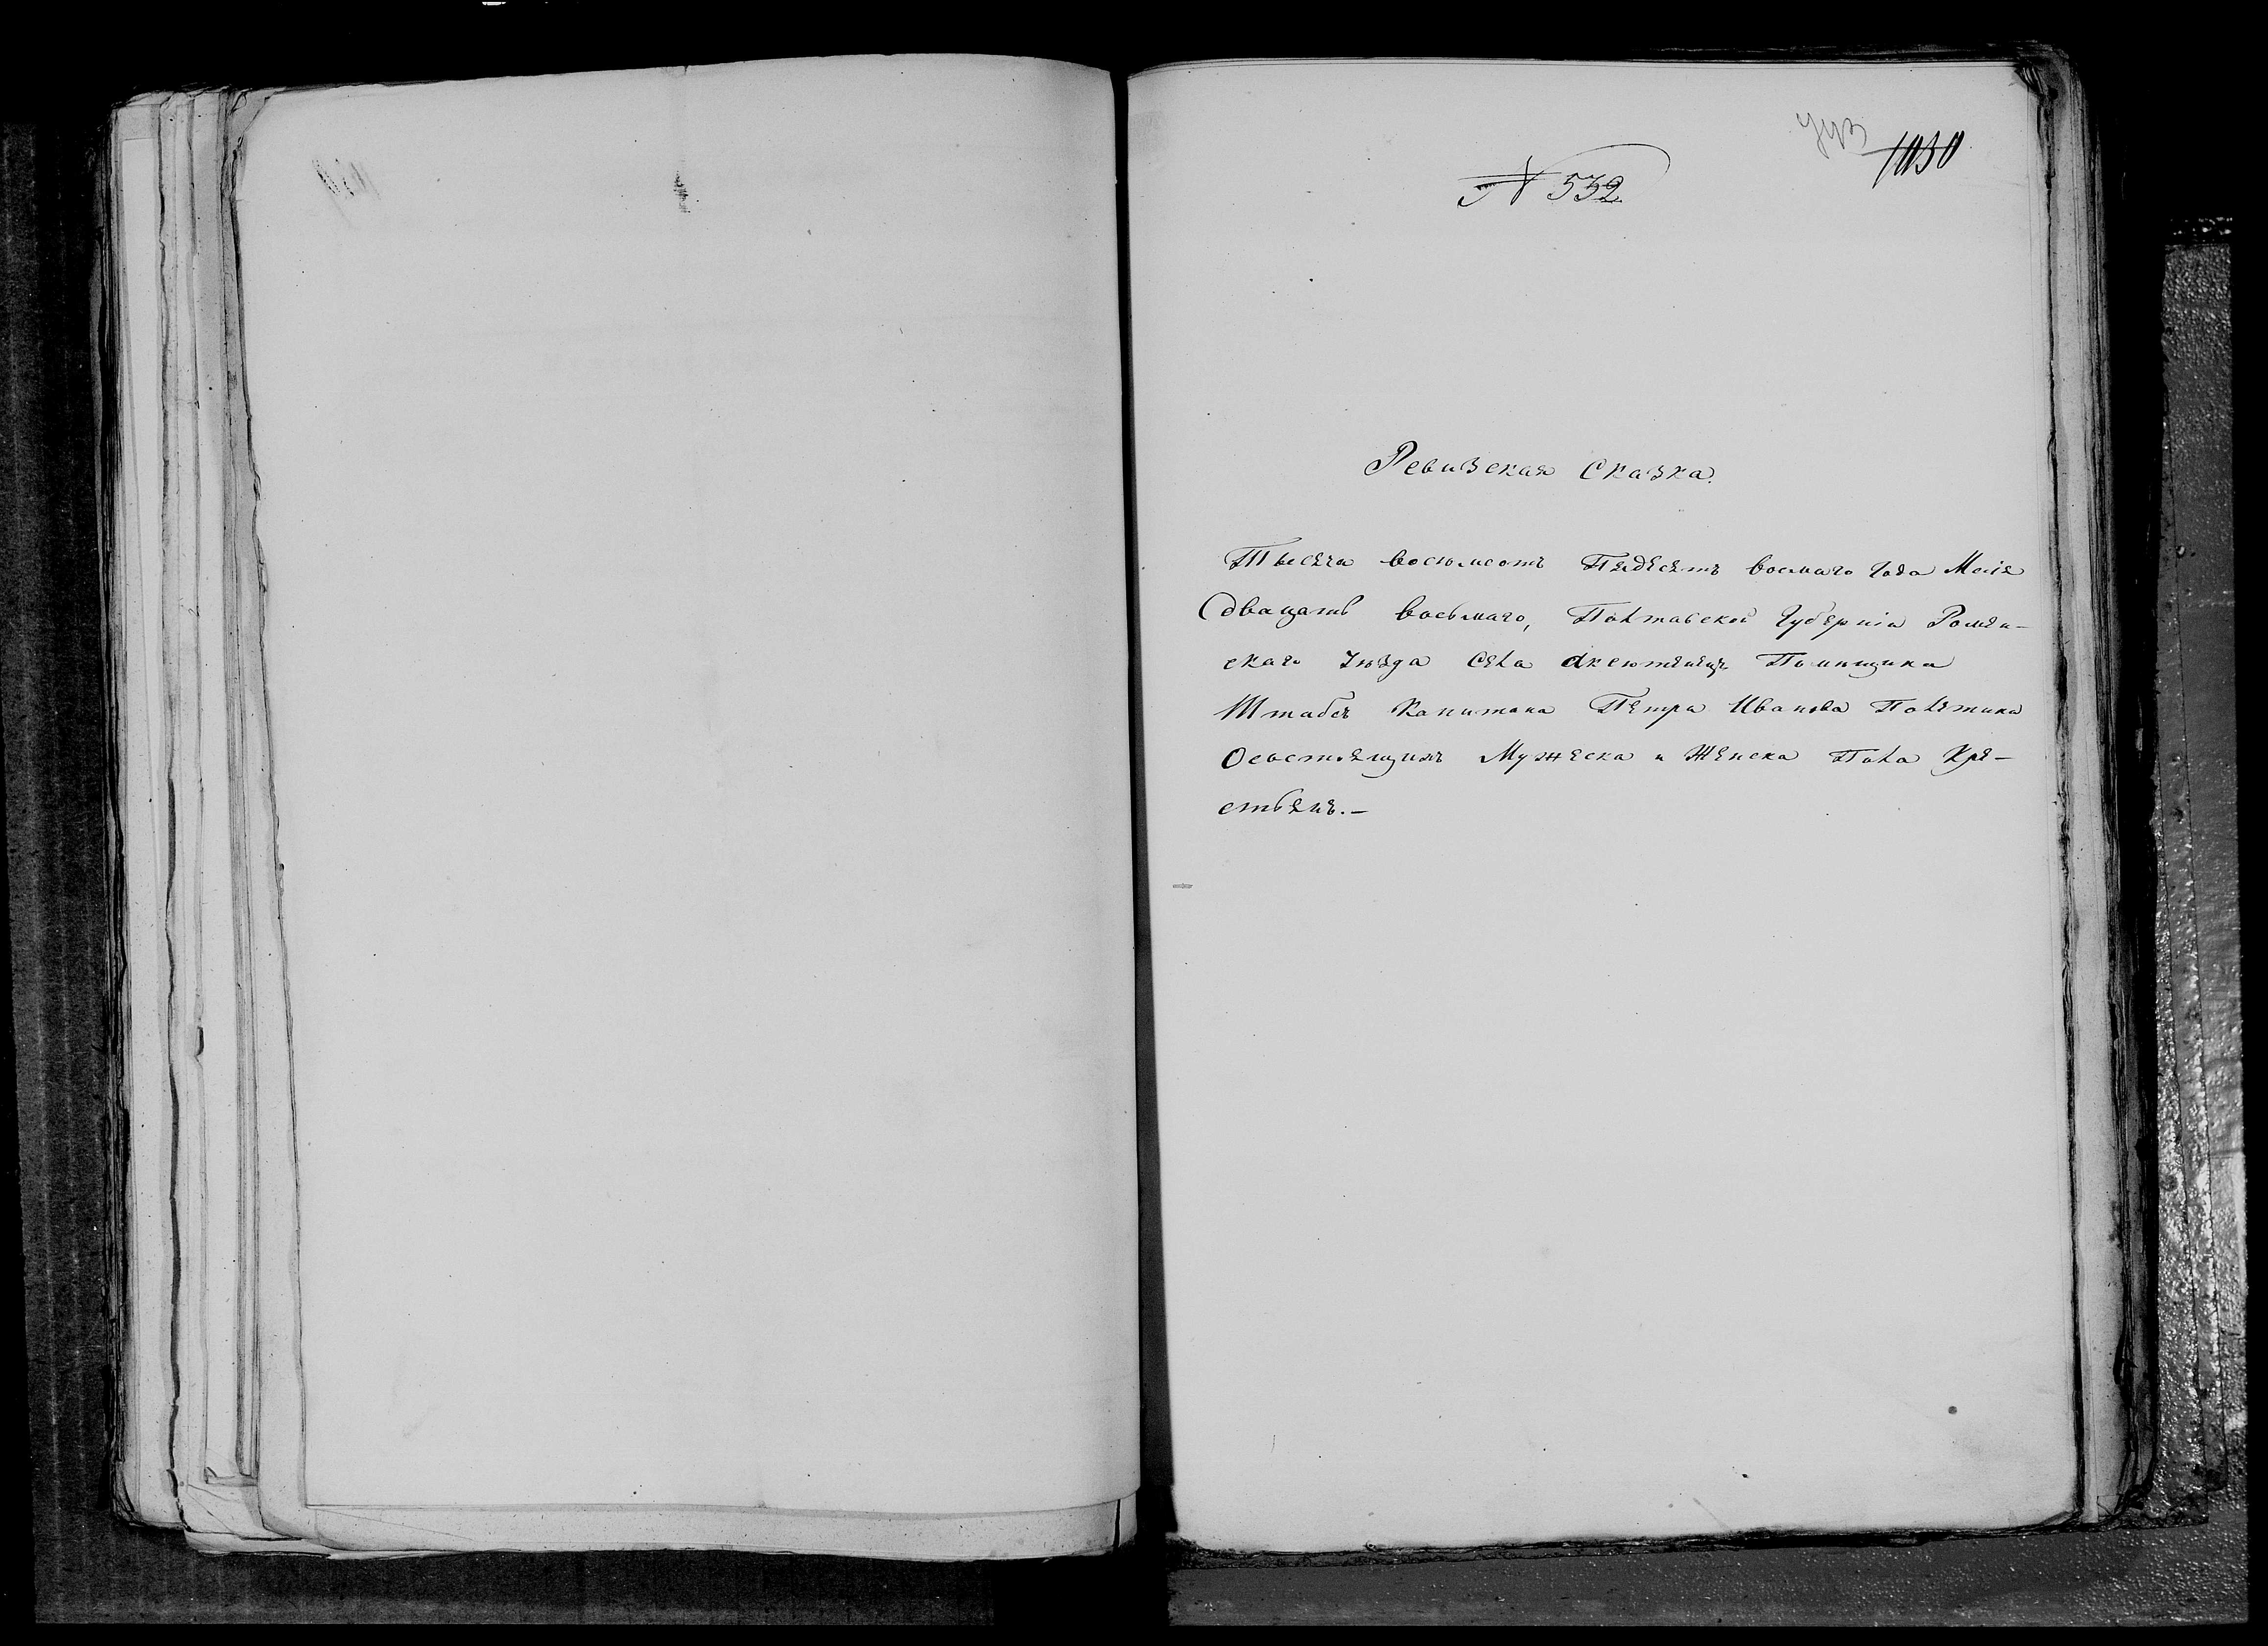 1030
N 532
Ревизская Сказка.
Тысяча восюмсотъ Пядесятъ восмаго Года Месія
двацать восьмаго, Полтавской Губерніи Ромен-
скаго Уѣзда Села Аксютенецъ Помещика
Штабсъ Капитана Петра Иванова Полетика
О состоящихъ Мужеска и Женска Пола Кре-
стьянъ.-